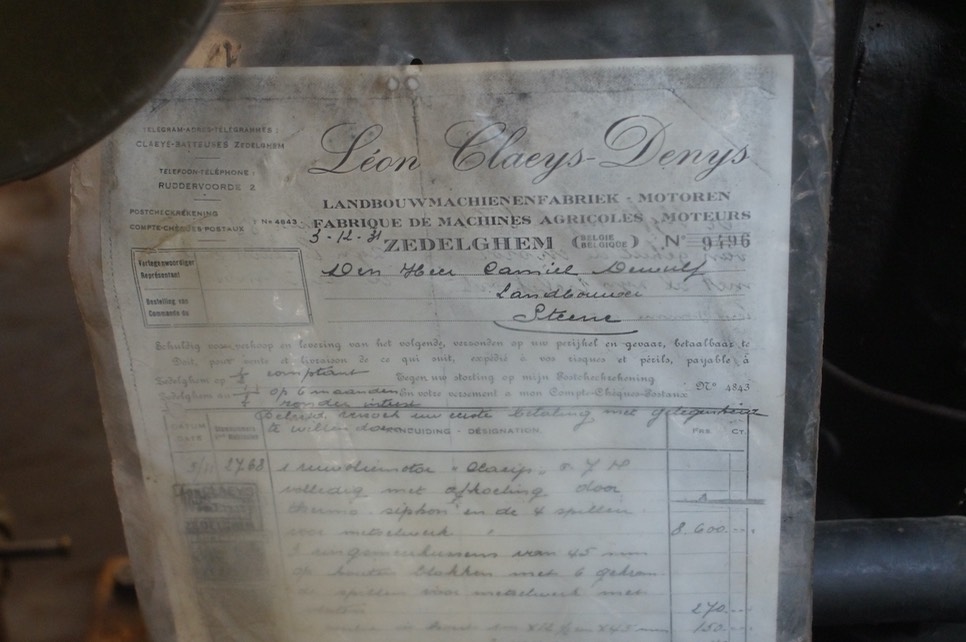 TELEGRAM-ADRES-TÉLÉGRAMMES :
CLAEYS-BATTEUSES ZEDELGHEM
TELEFOON-TÉLÉPHONE :
RUDDERVOORDE 2
POSTCHECKREKENING
COMPTE-CHÈQUES POSTAUX
Nº 4843
Léon Claeys-Denys
LANDBOUWMACHIENENFABRIEK - MOTOREN
FABRIQUE DE MACHINES AGRICOLES - MOTEURS
3-12-31
ZEDELGHEM (BELGIE BELGIQUE) Nº 9496
Vertegenwoordiger
Représentant
Bestelling van
Commande du
Den Heer Camiel
Landbouwer
Steene
Schuldig voor verkoop en levering van het volgende, verzonden op uw perijkel en gevaar, betaalbaar te
Doit, pour vente et livraison de ce qui suit, expédié à vos risques et périls, payable à
Zedelghem op ½ comptant Tegen uw storting op mijn Postcheckrekening
Zedelghem au op 6 maanden En votre versement à mon Compte-Chèques-Postaux Nº 4843
zonder intrest
Beleefd verzoek uw eerste betaling met gelegenheid
te willen doen
DATUM
DATE
DUIDING - DÉSIGNATION.
FRS
CT.
5/11 2768 1 ruwoliemotor "Claeys" 7 H
volledig met afkoeling door
thermo-siphon en de 4 spillen
voor metselwerk 8.600
van 45 mm
op houten blokken met 6
de spillen voor metselwerk met
270
150